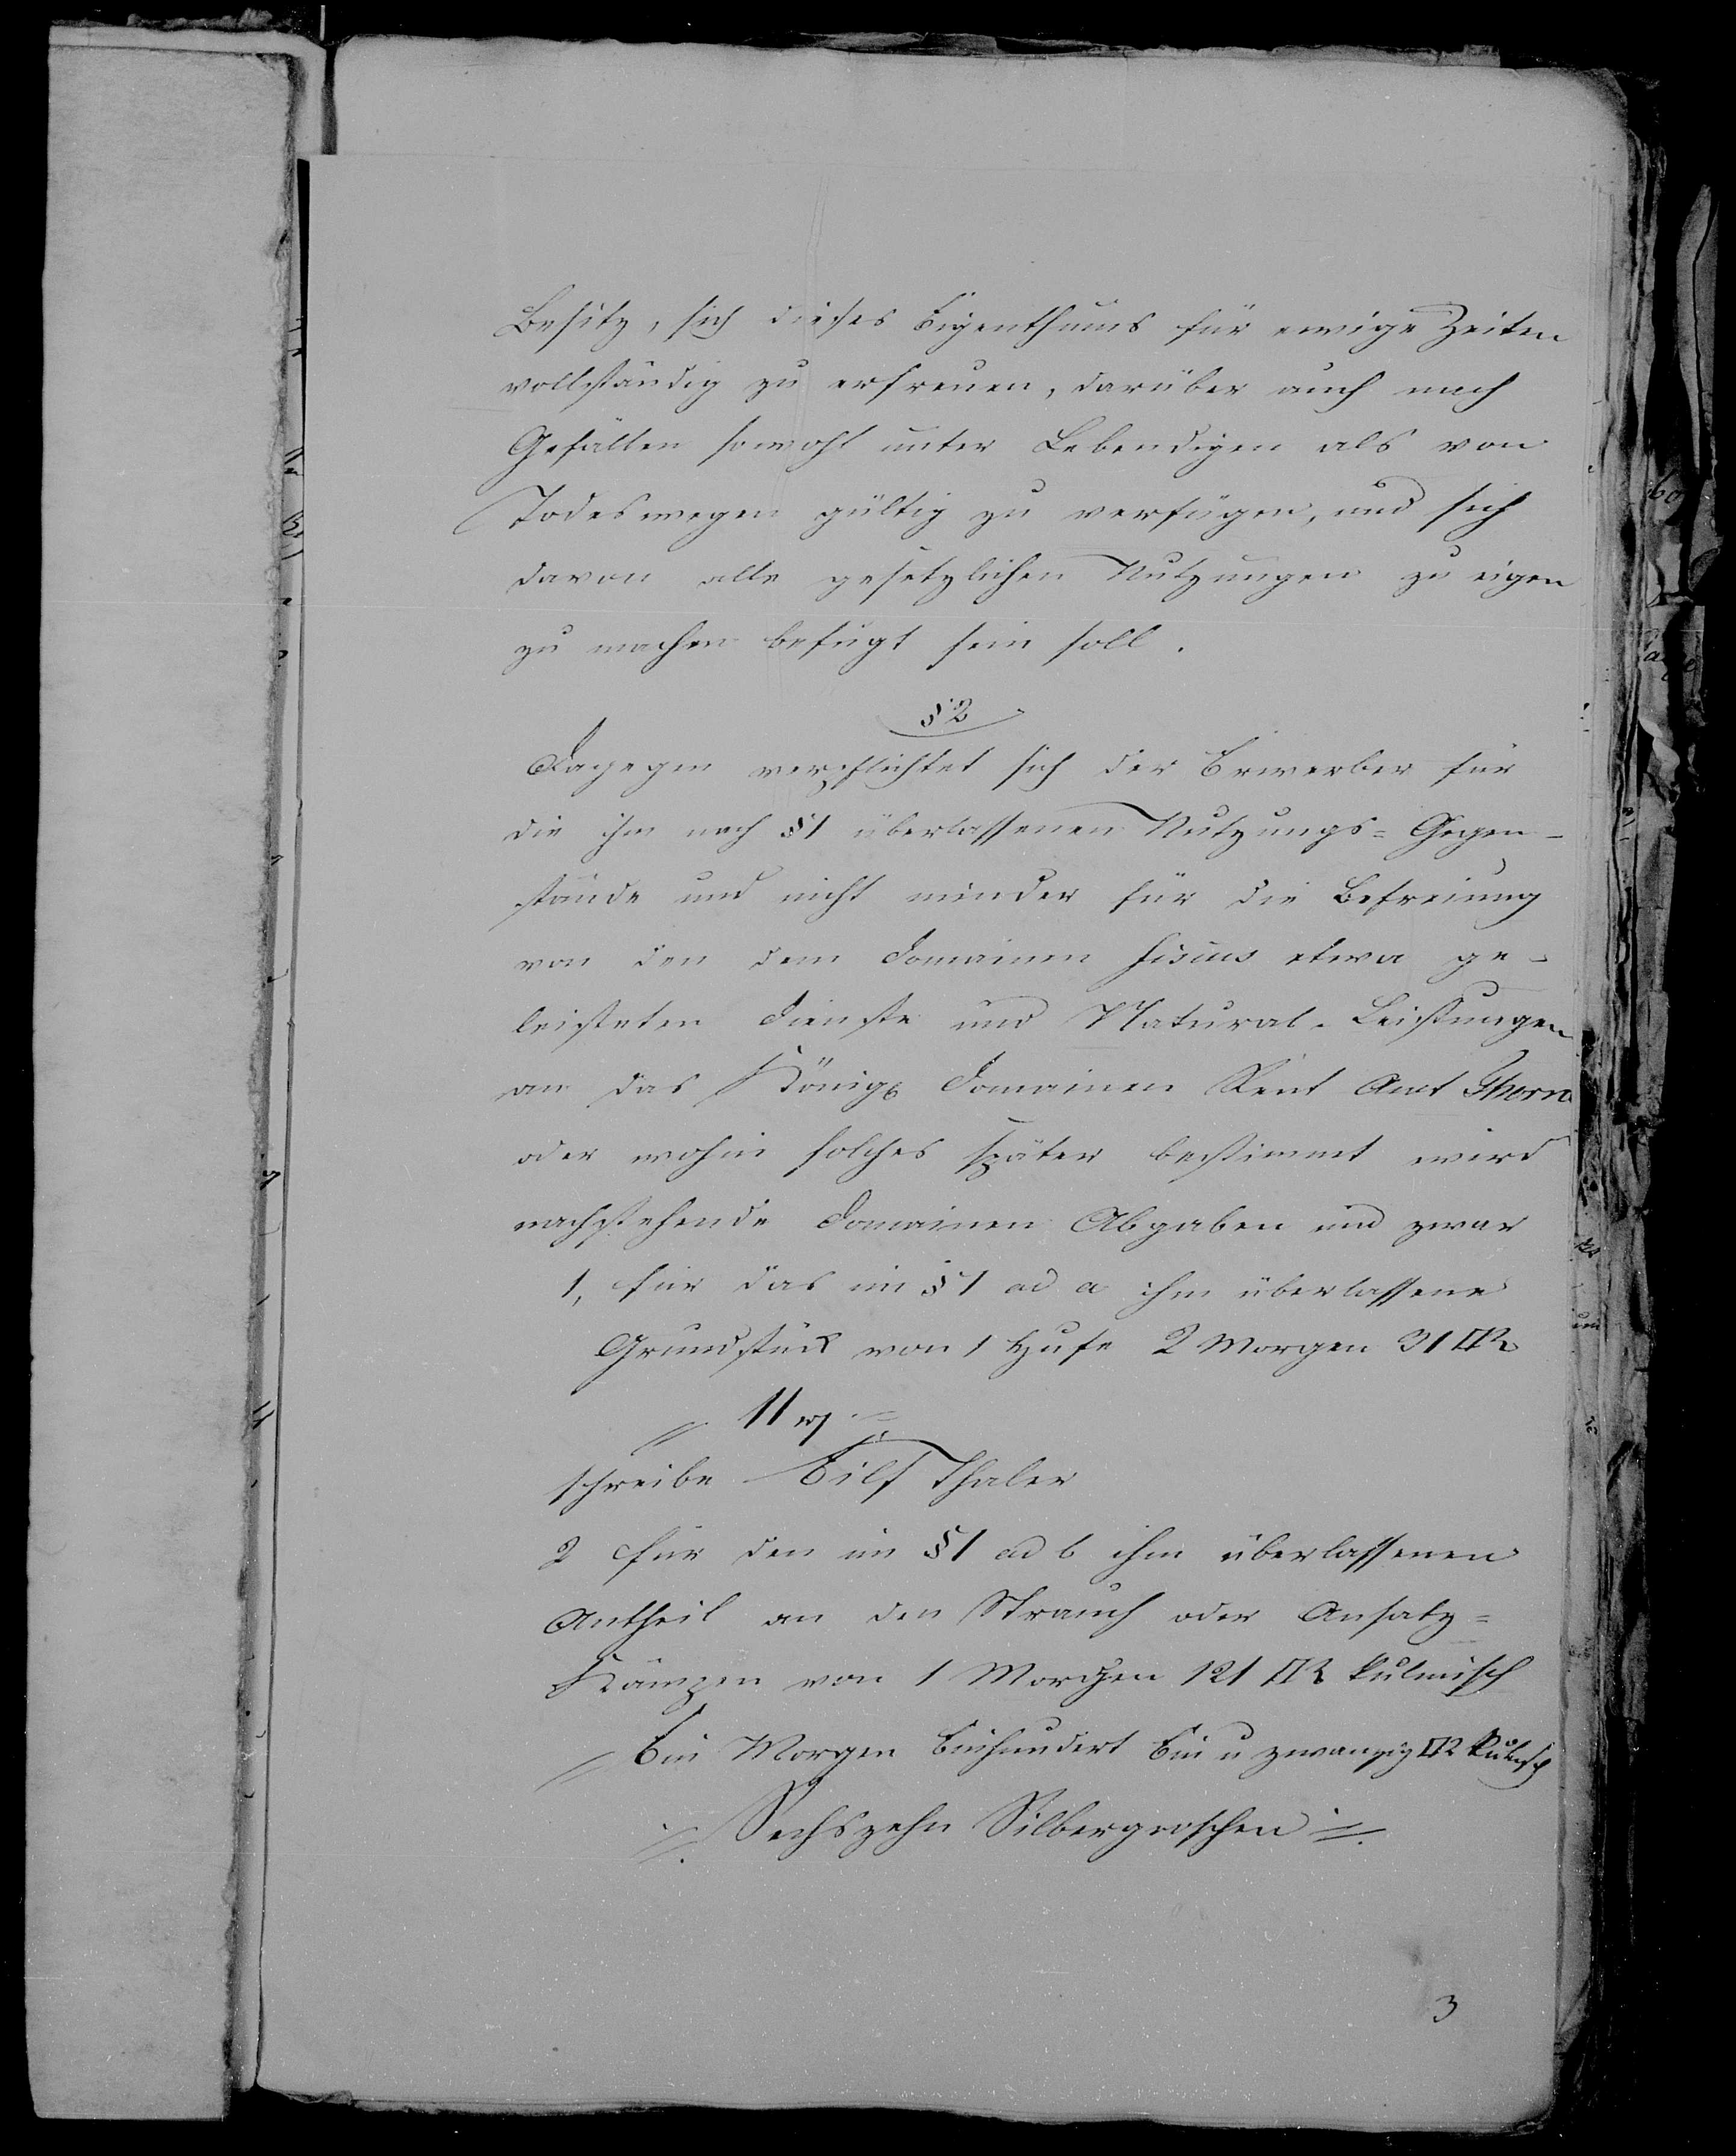 Besitz, sich dieses Eigenthums für ewige Zeiten
vollständig zu erfreuen, darüber auch nach
Gefallen sowohl unter Lebendigen als von
Todeswegen gültig zu verfügen, und sich
davon alle gesetzlichen Nutzungen zu eigen
zu machen befugt sein soll.
§ 2
Dagegen verpflichtet sich der Erwerber für
die ihm nach § 1 überlassenen Nutzungs= Gegen-
stände und nicht minder für die Befreiung
von den dem Domainen Fiscus etwa ge-
leisteten Dienste und Natural-Leistungen
an das Königl Domainen Rent Amt Thorn
oder wohin solches später bestimmt wird
nachstehende Domainen Abgaben und zwar
1, für das im § 1 ad a ihm überlassene
Grundstück von 1 Hufe 2 Morgen 31 □R
11 rt
schreibe Eilf Thaler
2 für den im § 1 ad b ihm überlassenen
Antheil an den Strauch oder Ansatz=
Kämpen von 1 Morgen 121 □R kulmisch
Ein Morgen Einhundert Ein u zwanzig □R kulmsch
Sechszehn Silbergroschen
3